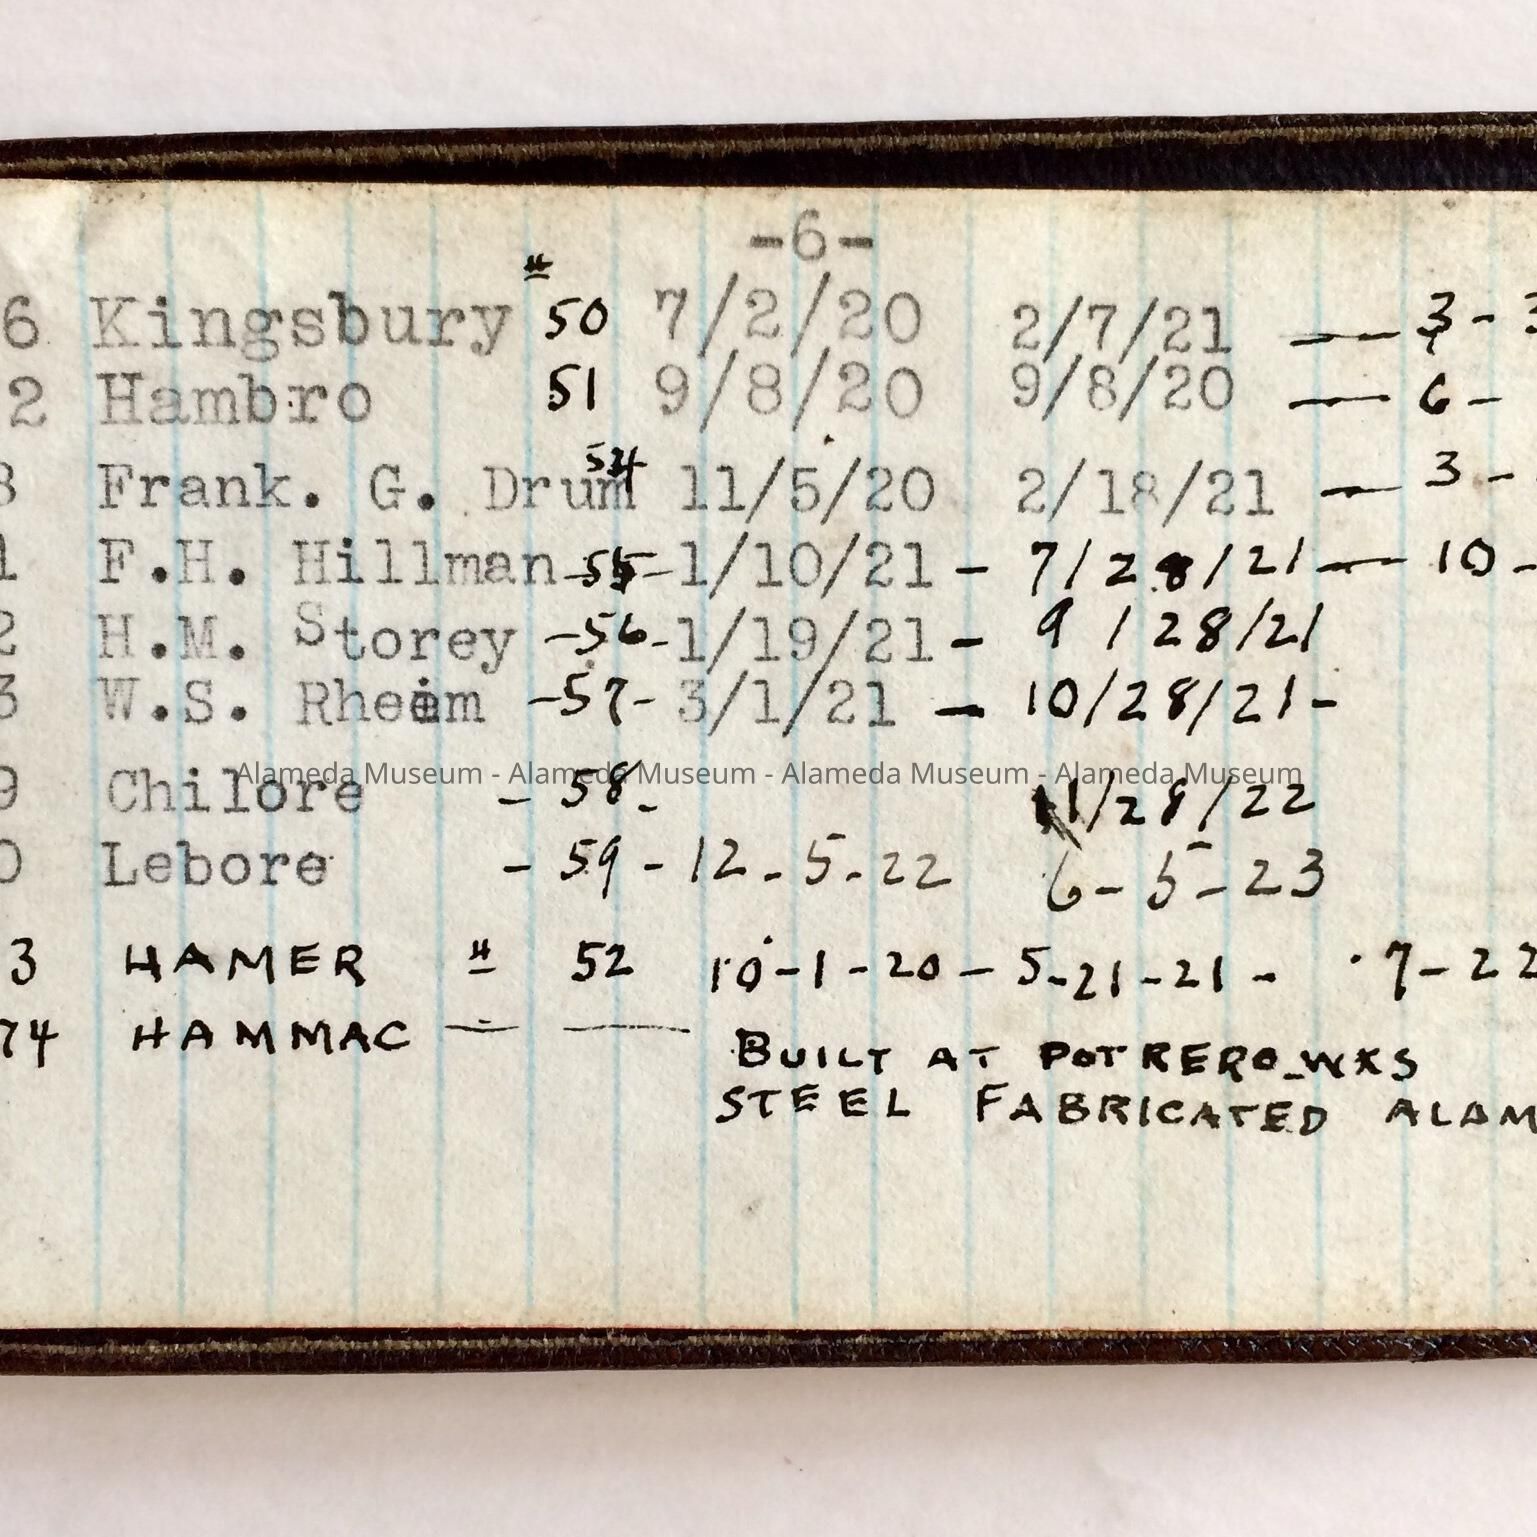 -6-
6 Kingsbury # 50 7/2/20 2/7/21 — 3-3
2 Hambro 51 9/8/20 9/8/20 — 6-
8 Frank. G. Drum 54 11/5/20 2/18/21 — 3-
1 F.H. Hillman -55- 1/10/21 - 7/28/21 — 10-
2 H.M. Storey -56- 1/19/21 - 9/28/21
3 W.S. Rheem -57- 3/1/21 - 10/28/21-
Alameda Museum - Alameda Museum - Alameda Museum - Alameda Museum
9 Chilore - 58- 11/28/22
0 Lebore - 59 - 12-5-22 6-5-23
3 HAMER # 52 10-1-20 - 5-21-21 - 7-22
74 HAMMAC — — BUILT AT POTRERO-WKS
STEEL FABRICATED ALAM